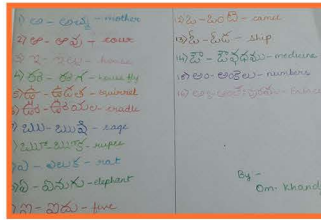 1) అ - అమ్మ - mother
2) ఆ - ఆవు - cow
3) ఇ - ఇల్లు - house
4) ఈ - ఈగ - house fly
5) ఉ - ఉడత - squirrel
6) ఊ - ఊయల - cradle
7) ఋ - ఋషి - sage
rupee
ఎ - ఎలుక - rat
ఏ - ఏనుగు - elephant
ఐ - ఐదు - five
12) ఒ - ఒంటె - camel
13) ఓ - ఓడ - ship
14) ఔ - ఔషధము - medicine
15) అం - అంకెలు - numbers
By :-
Om - Khand